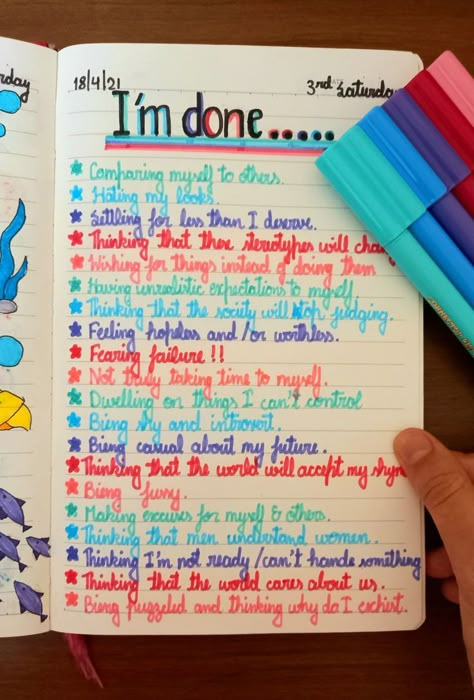 rday
18/4/21
3rd Saturday
I'm done.....
Comparing myself to others.
Hating my looks.
Settling for less than I deserve.
Thinking that these stereotypes will chan
Wishing for things instead of doing them
Having unrealistic expectations to myself
Thinking that the society will stop judging.
Feeling hopeless and /or worthless.
Fearing failure !!
Not truly taking time to myself.
Dwelling on things I can't control
Bieng shy and introvert.
Bieng casual about my future.
Thinking that the world will accept my shyn
Bieng funy.
Making excuses for myself & others.
Thinking that men understand women.
Thinking I'm not ready /can't hande something
Thinking that the world cares about us.
Bieng puzzeled and thinking why do I exchist.